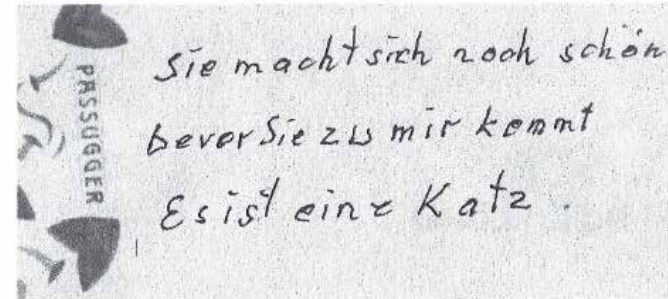 PASSUGGER
Sie macht sich noch schön
bevor Sie zu mir kommt
Es ist eine Katz.